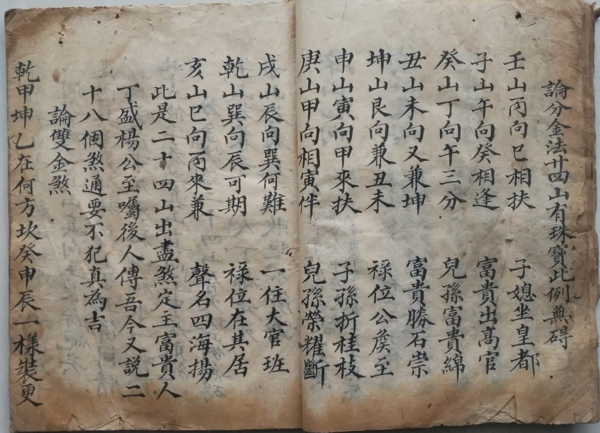 論分金法廿四山有珠寶此例無碍
壬山丙向巳相扶 子媳坐皇都
子山午向癸相逢 富貴出高官
癸山丁向午三分 兒孫富貴綿
丑山未向又兼坤 富貴勝石崇
坤山艮向兼丑未 祿位公侯至
申山寅向甲來扶 子孫折桂枝
庚山甲向相寅伴 兒孫榮耀斷
戌山辰向巽何難 一任大官班
乾山巽向辰可期 祿位在其居
亥山巳向丙來兼 聲名四海揚
此是二十四山出盡煞定主富貴人
丁盛楊公至囑後人傳吾今又說二
十八個煞通要不犯真為吉
論雙金煞
乾甲坤乙在何方坎癸申辰一樣裝更